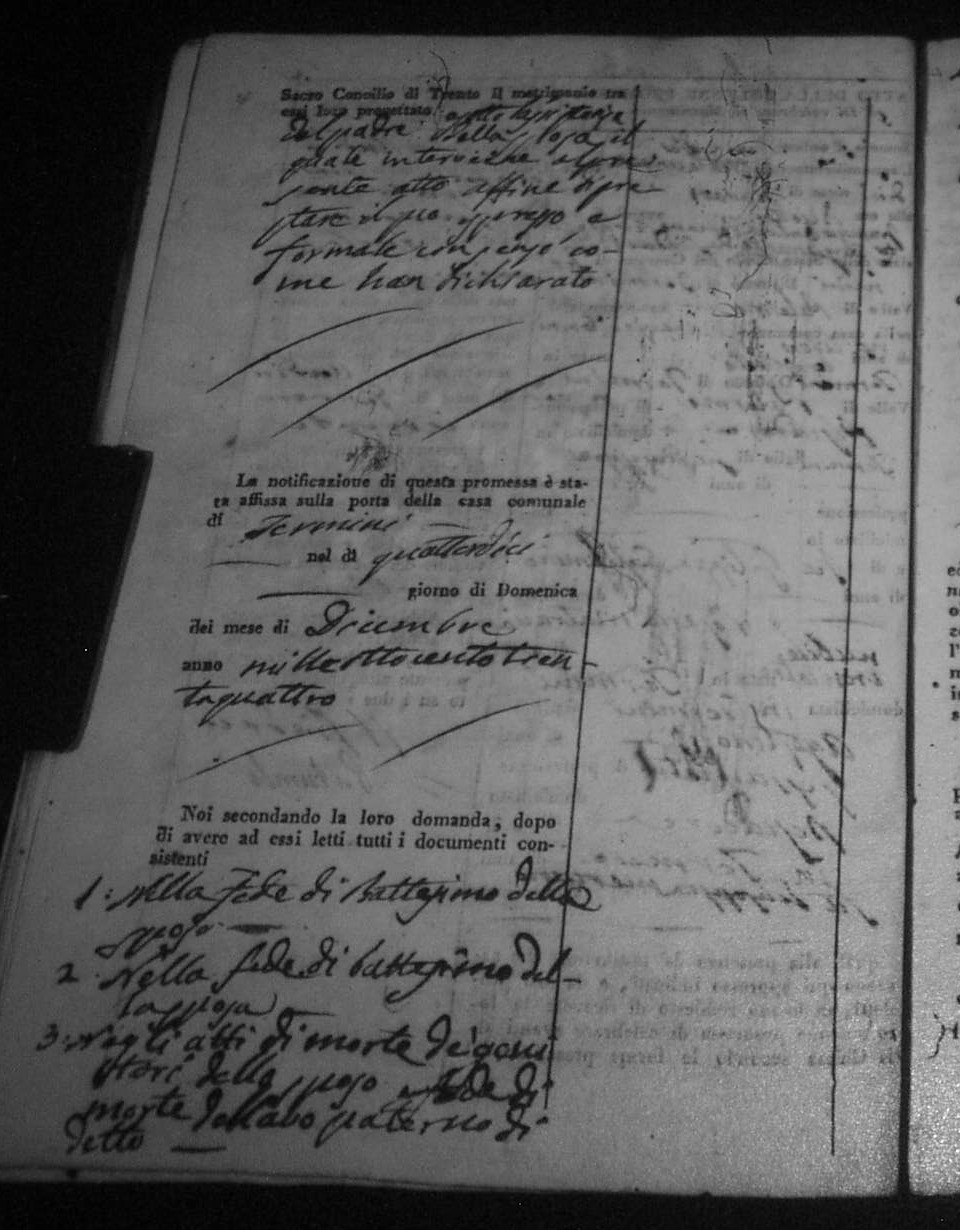 Sacro Concilio di Trento il matrimonio tra
essi loro progettato. sotto l'assistenza
del padre della sposa, il
quale interviene al pre
sente atto affine di pre
stare il suo espresso e
formale consenso co-
me han dichiarato
La notificazione di questa promessa è sta-
ta affissa sulla porta della casa comunale
di Termini
nel dì quattordici
giorno di Domenica
del mese di Dicembre
anno milleottocentotren-
taquattro
Noi secondando la loro domanda, dopo
di avere ad essi letti tutti i documenti con-
sistenti
1: Nella Fede di Battesimo dello
sposo
2. Nella fede di battesimo del-
la sposa
3: Negli atti di morte de' geni
tori dello sposo Fede di
morte dell'avo paterno di
detto